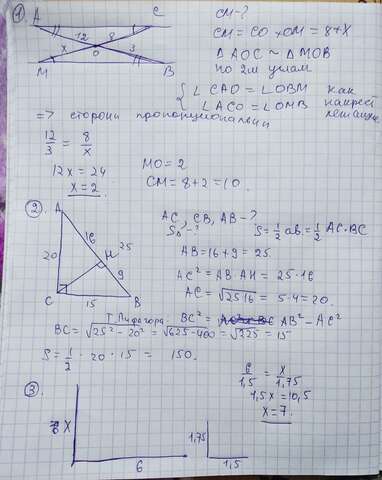 1. A C
12 8
x O 3
M B
CM-?
CM = CO + OM = 8+x
Δ AOC ~ Δ MOB
по 2м углам
{ ∠ CAO = ∠OBM как
∠ ACO = ∠OMB накрест
лежащие
=> стороны пропорциональны
12/3 = 8/x
12x = 24
x = 2.
MO = 2
CM = 8+2 = 10.
2. A
16 25
H
20
9
C 15 B
AC, CB, AB - ?
S△ - ? S = 1/2 ab = 1/2 AC·BC
AB = 16 + 9 = 25.
AC² = AB·AH = 25·16
AC = √25·16 = 5·4 = 20.
Т. Пифагора: BC² = AB² - AC²
BC = √25² - 20² = √625-400 = √225 = 15
S = 1/2 · 20 · 15 = 150.
3.
x
6
1,75
1,5
6/1,5 = x/1,75
1,5x = 10,5
x = 7.